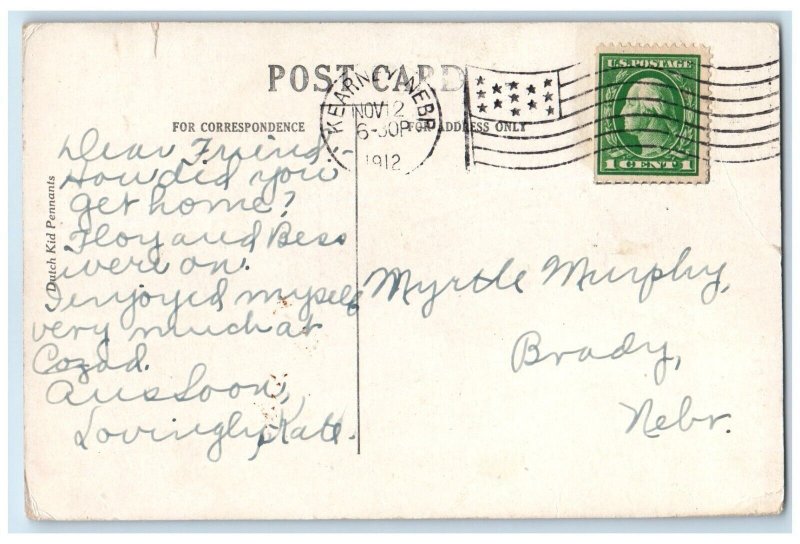 POST CARD
FOR CORRESPONDENCE
FOR ADDRESS ONLY
KEARNEY, NEBR.
NOV 12
6-30P
1912
U.S. POSTAGE
1 CENT 1
Dutch Kid Pennants
Dear Friend:-
How did you
get home?
Floy and Bess
were on.
I enjoyed myself
very much at
Cozad.
Ans Soon,
Lovingly Kate.
Myrtle Murphy,
Brady,
Nebr.